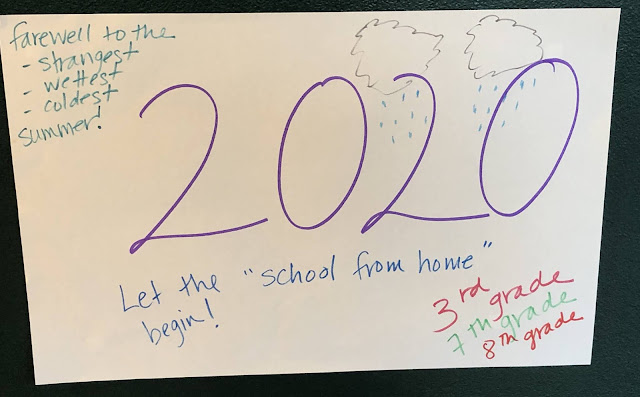 farewell to the
- strangest
- wettest
- coldest
summer!
2020
Let the "school from home"
begin!
3rd grade
7th grade
8th grade